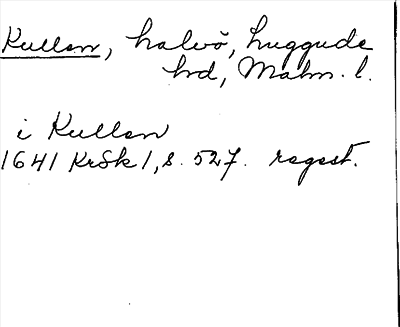 Kullen, halvö, Luggude
hd, Malm. l.
i Kullen
1641 KrSk 1, s. 527. regest.